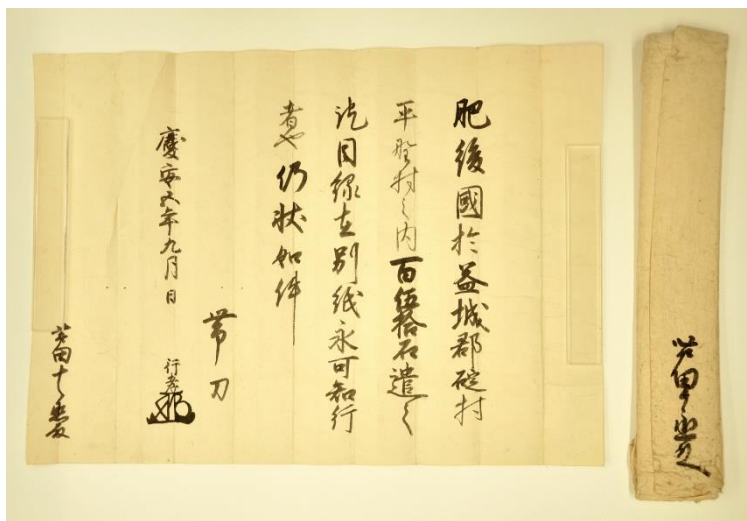 肥後國於益城郡碇村
平野村之内百伍拾石遣之
訖目録在別紙永可知行
者也仍状如件
慶安五年九月日
帯刀
行孝
芦田十左